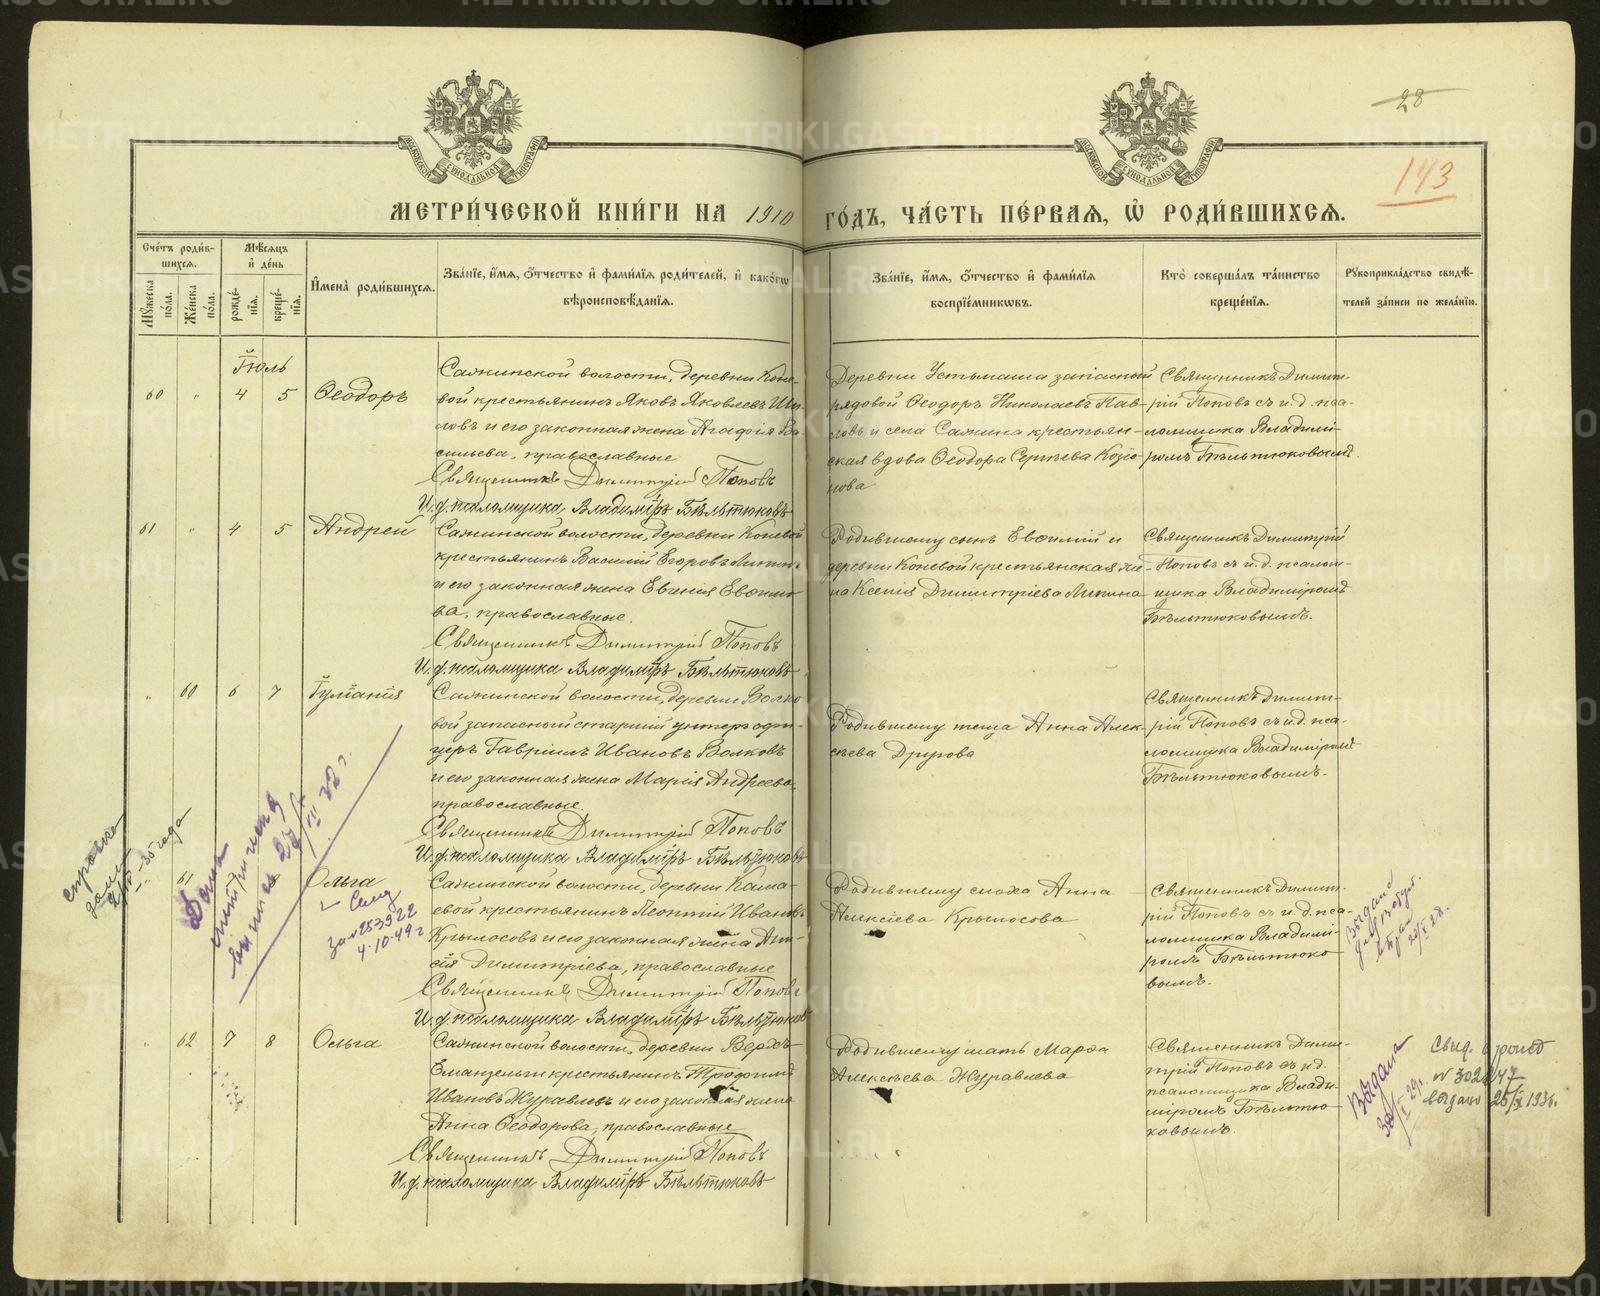 28
143
МЕТРИ́ЧЕСКОЙ КНИ́ГИ НА 1910 ГО́ДЪ, ЧА́СТЬ ПЕ́РВАЯ, Ѡ҆ РОДИ́ВШИХСЯ.
Сче́тъ роди́в-
шихся.
Мꙋжеска по́ла.
Же́нска по́ла.
Мѣ́сяцъ
и҆ де́нь
рожде́нїя.
креще́нїя.
И҆мена̀ роди́вшихся.
Зва́нїе, и҆́мя, ѻ҆́тчество и҆ фами́лїя роди́телей, и҆ како́гѡ
вѣроисповѣ́данїя.
Зва́нїе, и҆́мя, ѻ҆́тчество и҆ фами́лїя
воспрїе́мникѡвъ.
Кто̀ соверша́лъ та́инство
креще́нїя.
Рꙋкоприкла́дство свидѣ́-
телей за́писи по жела́нїю.
Іюль
60 " 4 5 Ѳеодоръ
Сажинской волости, деревни Коне-
вой крестьянинъ Яковъ Яковлевъ Ши-
ловъ и его законная жена Агафія Ва-
сильева, православные
Священникъ Димитрій Поповъ
И.д. псаломщика Владиміръ Бѣльтюковъ
Деревни Устьмаша запасный
рядовой Ѳеодоръ Николаевъ Пав-
ловъ и села Сажина крестьян-
ская вдова Ѳеодора Сергѣева Козио-
нова
Священникъ Димит-
рій Поповъ съ и.д. пса-
ломщика Владимі-
ромъ Бѣльтюковымъ.
61 " 4 5 Андрей
Сажинской волости, деревни Коневой
крестьянинъ Василій Егоровъ Липинъ
и его законная жена Евгенія Евѳимо-
ва, православные.
Священникъ Димитрій Поповъ
И.д. псаломщика Владиміръ Бѣльтюковъ
Родившему сынъ Евѳимій и
деревни Коневой крестьянская же-
на Ксенія Димитріева Липина
Священникъ Димитрій
Поповъ съ и.д. псалом-
щика Владиміромъ
Бѣльтюковымъ.
" 60 6 7 Іуліанія
Сажинской волости, деревни Волко-
вой запасный старшій унтеръ офи-
церъ Гавріилъ Ивановъ Волковъ
и его законная жена Марія Андреева,
православные.
Священникъ Димитрій Поповъ
И.д. псаломщика Владиміръ Бѣльтюковъ
Родившему теща Анна Алек-
сѣева Другова
Священникъ Димит-
рій Поповъ съ и.д. пса-
ломщика Владиміромъ
Бѣльтюковымъ.
" 61 Ольга
Сажинской волости, деревни Кама-
евой крестьянинъ Леонтій Ивановъ
Крылосовъ и его законная жена Ани-
сія Димитріева, православные
Священникъ Димитрій Поповъ
И.д. псаломщика Владиміръ Бѣльтюковъ
Родившему сноха Анна
Алексѣева Крылосова
Священникъ Димит-
рій Поповъ съ и.д. пса-
ломщика Владимі-
ромъ Бѣльтюко-
вымъ.
" 62 7 8 Ольга
Сажинской волости, деревни Верхъ-
Еманзельги крестьянинъ Трофимъ
Ивановъ Журавлевъ и его законная жена
Анна Ѳеодорова, православные
Священникъ Димитрій Поповъ
И.д. псаломщика Владиміръ Бѣльтюковъ
Родившему мать Марѳа
Алексѣева Журавлева
Священникъ Дими-
трій Поповъ съ и.д.
псаломщика Влади-
міромъ Бѣльтю-
ковымъ.
справка
дана
35 года
Дана
метрическ
27/III 32 г.
За № 253922
4-10-49 г
Выдана
Выдана
29 г.
Свид. о рожд
№ 302847
выдано 25/X 193
METRIKI.GASO-URAL.RU